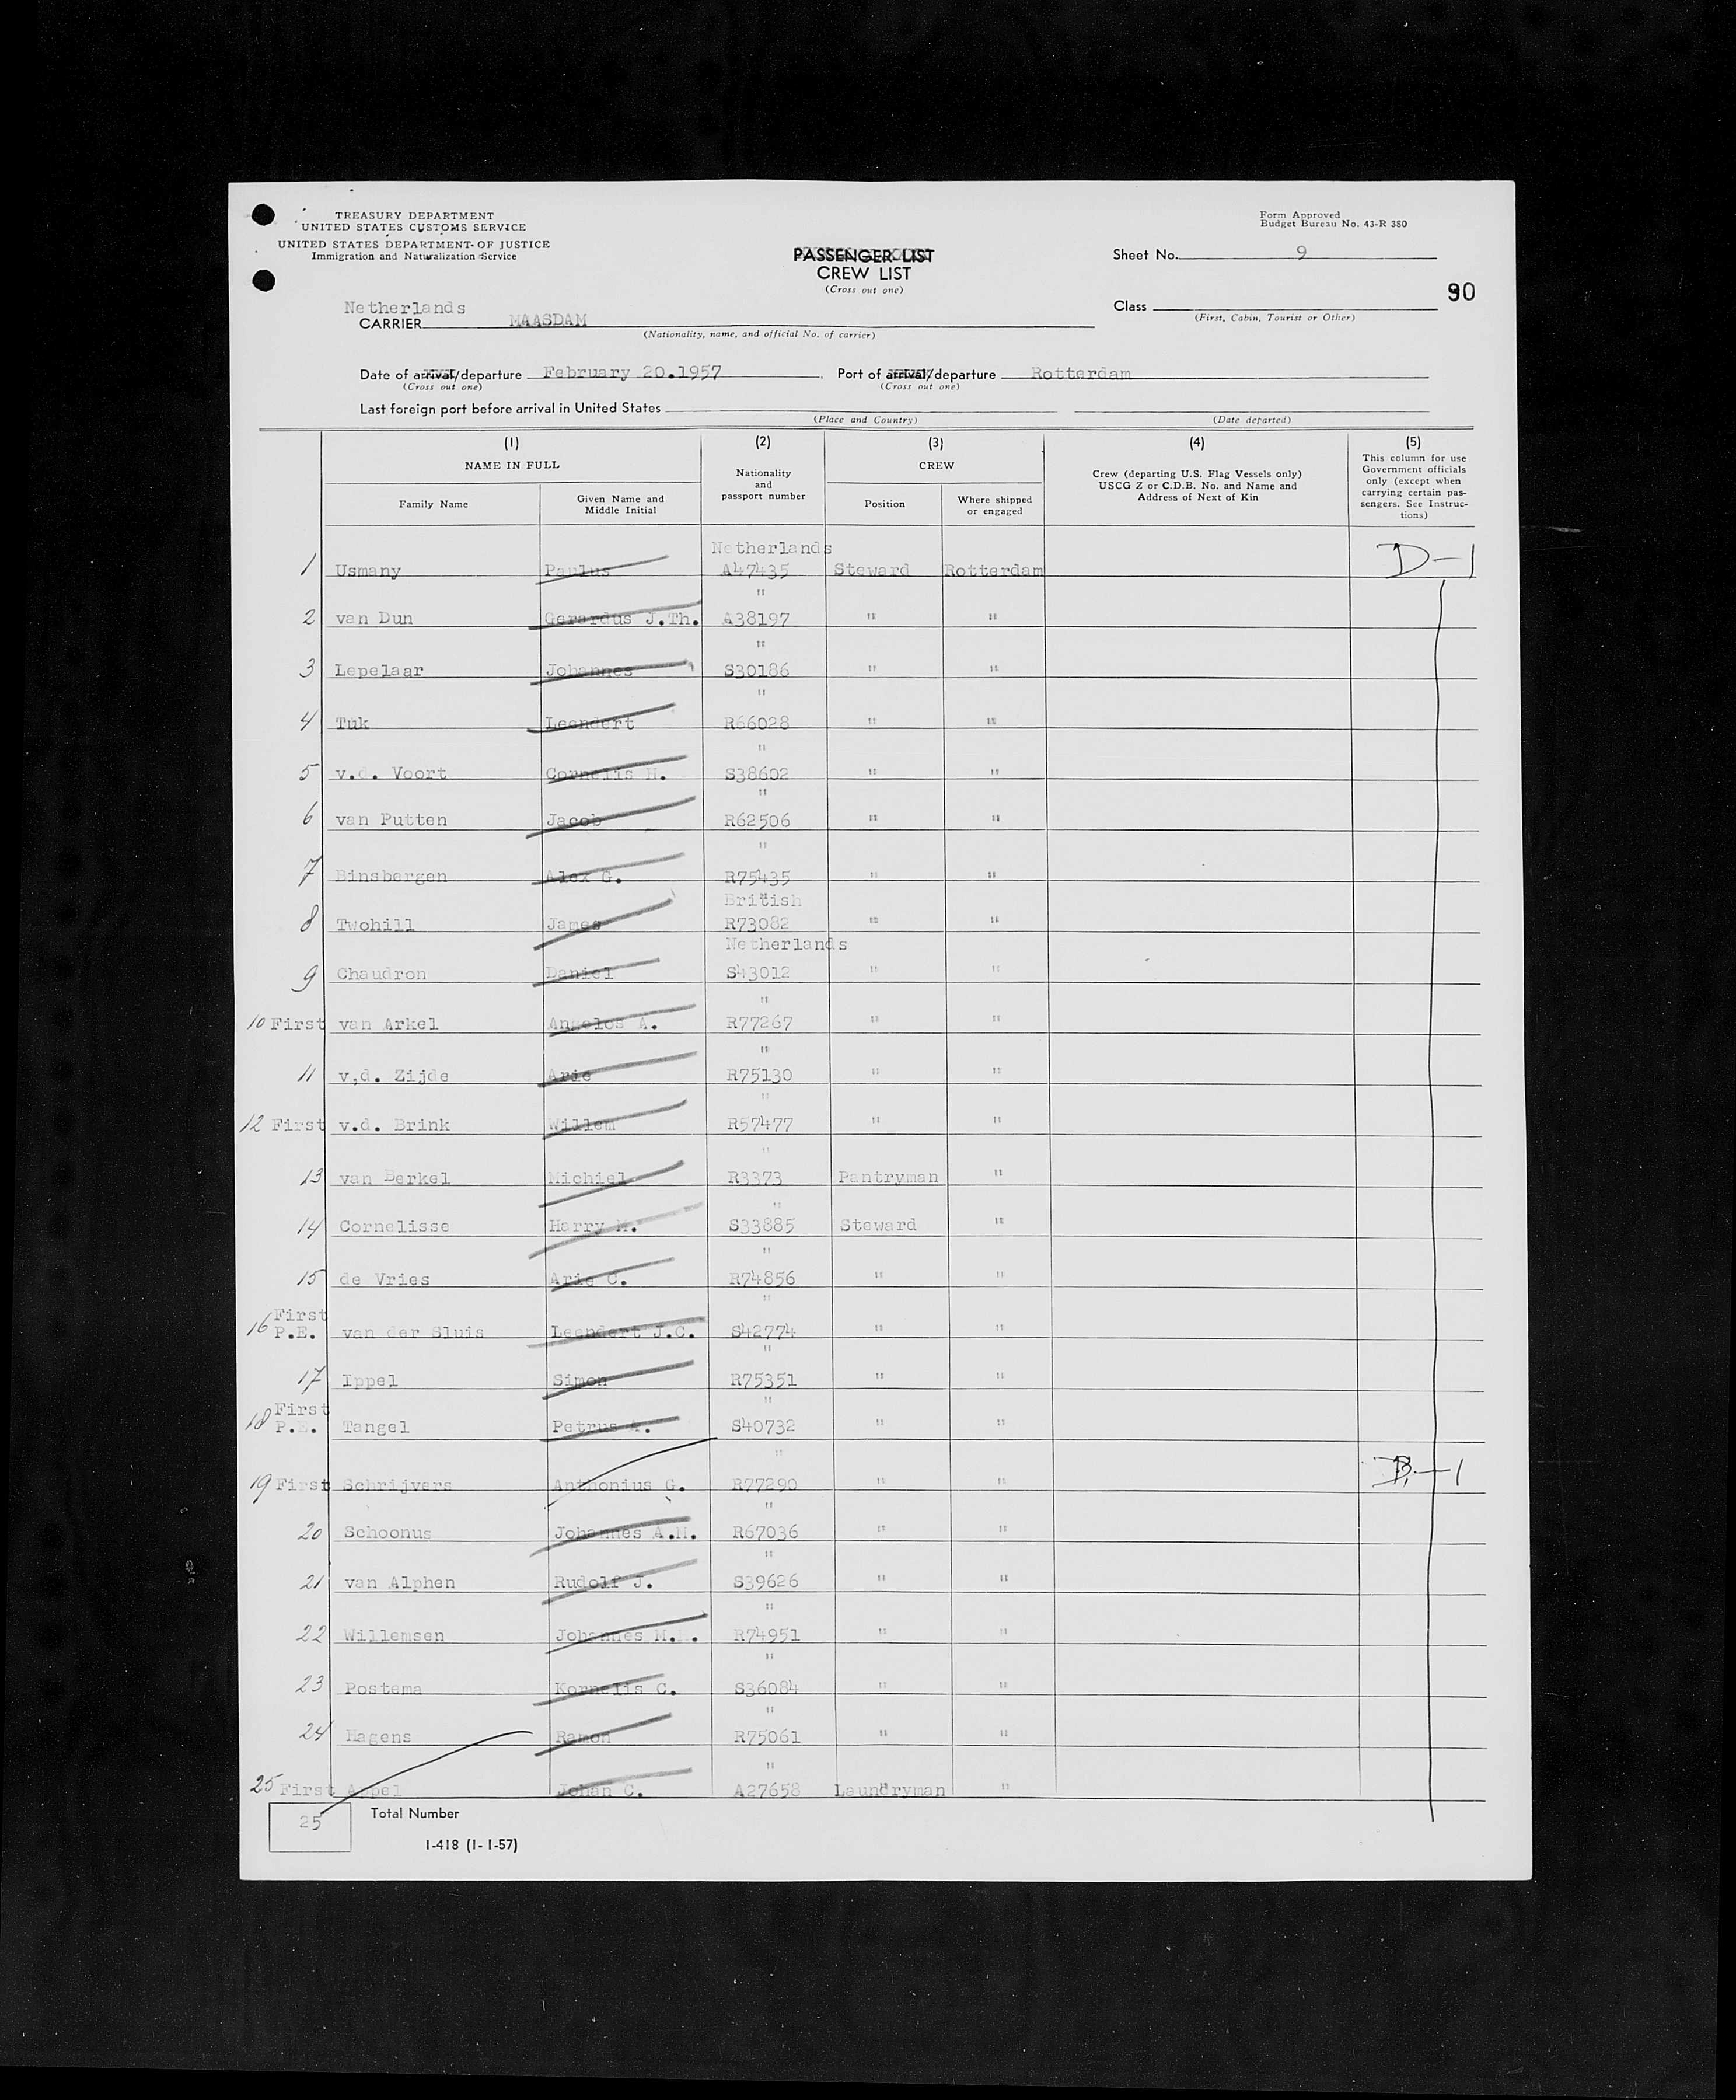 TREASURY DEPARTMENT
UNITED STATES CUSTOMS SERVICE
UNITED STATES DEPARTMENT OF JUSTICE
Immigration and Naturalization Service
Form Approved
Budget Bureau No. 43-R 380
PASSENGER LIST
CREW LIST
(Cross out one)
Sheet No. 9
90
Class
(First, Cabin, Tourist or Other)
Netherlands
CARRIER MAASDAM
(Nationality, name, and official No. of carrier)
Date of arrival/departure February 20.1957 Port of arrival/departure Rotterdam
(Cross out one) (Cross out one)
Last foreign port before arrival in United States
(Place and Country) (Date departed)
(1) (2) (3) (4) (5)
NAME IN FULL
Family Name
Given Name and Middle Initial
Nationality and passport number
CREW
Position
Where shipped or engaged
Crew (departing U.S. Flag Vessels only)
USCG Z or C.D.B. No. and Name and
Address of Next of Kin
This column for use
Government officials
only (except when
carrying certain pas-
sengers. See Instruc-
tions)
Netherlands
1 Usmany Paulus A47435 Steward Rotterdam D-1
"
2 van Dun Gerardus J.Th. A38197 " "
"
3 Lepelaar Johannes S30186 " "
"
4 Tuk Leendert R66028 " "
"
5 v.d. Voort Cornelis H. S38602 " "
"
6 van Putten Jacob R62506 " "
"
7 Binsbergen Alex G. R75435 " "
British
8 Twohill James R73082 " "
Netherlands
9 Chaudron Daniel S43012 " "
"
10 First van Arkel Angelos A. R77267 " "
"
11 v.d. Zijde Arie R75130 " "
"
12 First v.d. Brink Willem R57477 " "
"
13 van Berkel Michiel R3373 Pantryman "
"
14 Cornelisse Harry S33885 Steward "
"
15 de Vries Arie C. R74856 " "
"
16 First P.E. van der Sluis Leendert J.C. S42774 " "
"
17 Ippel Simon R75351 " "
"
18 First P.E. Tangel Petrus A. S40732 " "
"
19 First Schrijvers Anthonius G. R77290 " " B-1
"
20 Schoonus Johannes A.M. R67036 " "
"
21 van Alphen Rudolf J. S39626 " "
"
22 Willemsen Johannes M. R74951 " "
"
23 Postema Kornelis C. S36084 " "
"
24 Hagens Ramon R75061 " "
"
25 First Appel Johan C. A27658 Laundryman "
25 Total Number
I-418 (1-1-57)